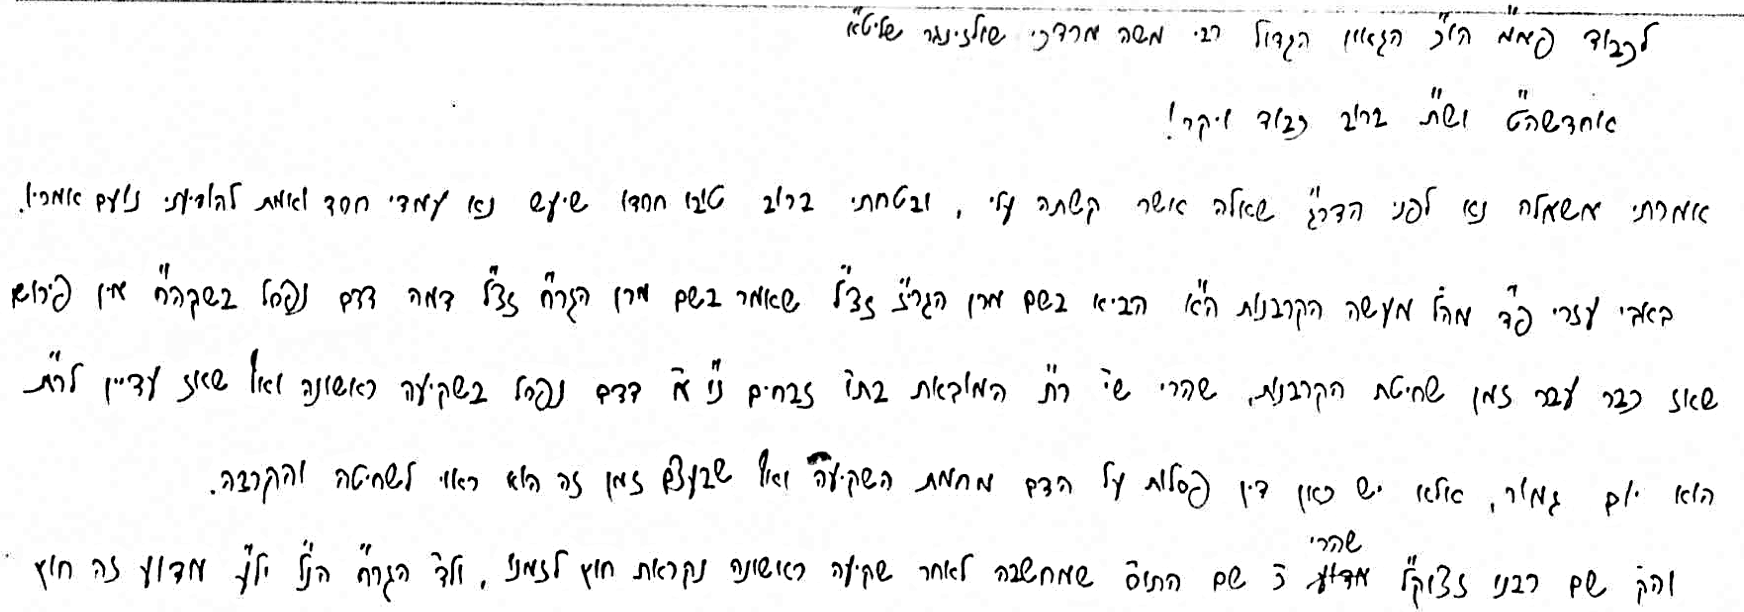 לכבוד פאמ״מ הי״כ הגאון הגדול רבי משה מרדכי שולזינגר שליט״א
אוחדשה״ט ושת״ ברוב כבוד ויקר!
אמרתי אשאלה נא לפני הדר״ג שאלה אשר קשתה עלי, ובטחתי ברוב טובו וחסדו שיעש נא עמדי חסד ואמת להודיעני נועם אמריו.
באבי עזרי פ״ד מהל׳ מעשה הקרבנות ה״א הביא בשם מרן הגרי״ז זצ״ל שאמר בשם מרן הגר״ח זצ״ל דמה דדם נפסל בשקה״ח אין פירושו
שאז כבר עבר זמן שחיטת הקרבנות, שהרי שי׳ ר״ת המובאת בתו׳ זבחים נ״ו א׳ דדם נפסל בשקיעה ראשונה ואף שאז עדיין לר״ת
הוא יום גמור, אלא יש כאן דין פסלות על הדם מחמת השקיעה ואף שבעצם זמן זה הוא ראוי לשחיטה והקרבה.
והק׳ שם רבנו זצוק״ל שהרי כ׳ שם התוס׳ שמחשבה לאחר שקיעה ראשונה נקראת חוץ לזמנו, ולד׳ הגר״ח הנ״ל יל״ע מדוע זה חוץ